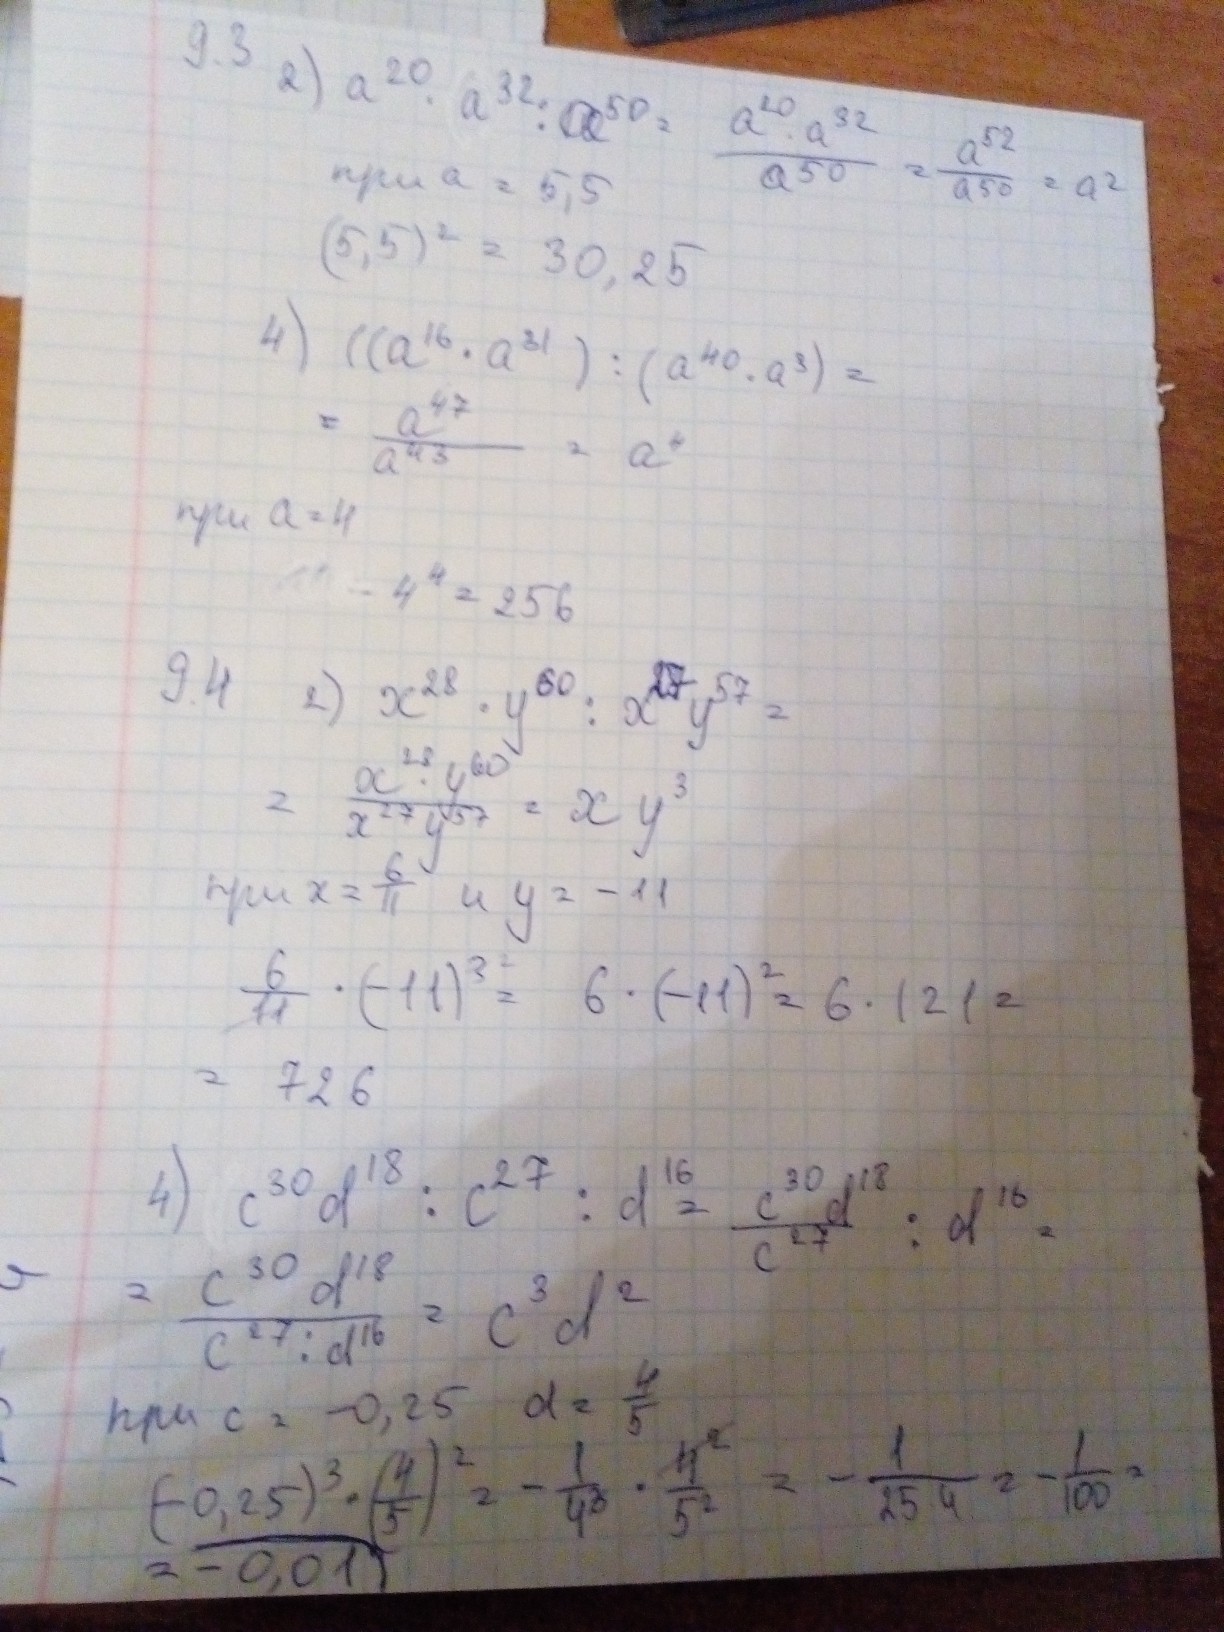 9.3 2) a^20 · a^32 : a^50 = (a^20 · a^32)/a^50 = a^52/a^50 = a^2
при a = 5,5
(5,5)^2 = 30,25
4) ((a^16 · a^31) : (a^40 · a^3) =
= a^47/a^43 = a^4
при a = 4
- 4^4 = 256
9.4 2) x^28 · y^60 : x^27 y^57 =
= (x^28 · y^60)/(x^27 y^57) = x y^3
при x = 6/11 и y = -11
6/11 · (-11)^3 = 6 · (-11)^2 = 6 · 121 =
= 726
4) c^30 d^18 : c^27 : d^16 = (c^30 d^18)/c^27 : d^16 =
= (c^30 d^18)/(c^27 : d^16) = c^3 d^2
при c = -0,25 d = 4/5
(-0,25)^3 · (4/5)^2 = - 1/4^3 · 4^2/5^2 = - 1/(25 4) = - 1/100 =
= -0,01